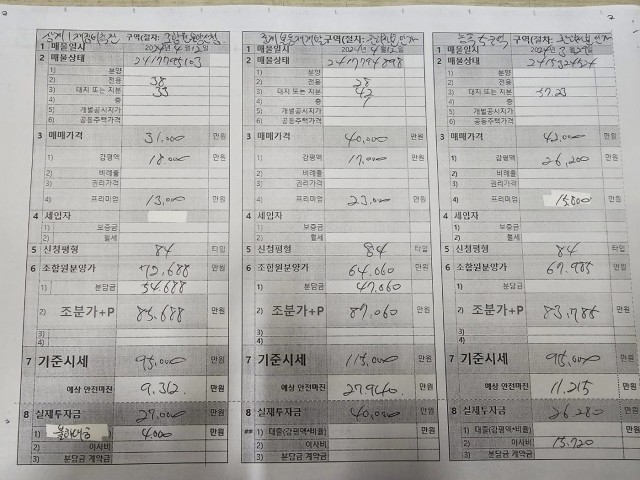 구역(절차:
1 매물일시 2024年 4月 12日
2 매물상태 2417795103
1) 분양
2) 전용 38
3) 대지 또는 지분 33
4) 층
5) 개별공시지가
6) 공동주택가격
3 매매가격 31,000 만원
1) 감평액 18,000 만원
2) 비례율
3) 권리가격
4) 프리미엄 13,000 만원
4 세입자
1) 보증금
2) 월세
5 신청평형 84 타입
6 조합원분양가 72,688 만원
1) 분담금 54,688
2) 조분가+P 85,688 만원
3)
4)
7 기준시세 95,000 만원
예상 안전마진 9,312 만원
8 실제투자금 27,000 만원
1) 4,000 만원
2) 이사비
3) 분담금 계약금
구역(절차:
1 매물일시 2024年 4月 12日
2 매물상태 2417794898
1) 분양
2) 전용 28
3) 대지 또는 지분 42
4) 층
5) 개별공시지가
6) 공동주택가격
3 매매가격 40,000 만원
1) 감평액 17,000 만원
2) 비례율
3) 권리가격
4) 프리미엄 23,000 만원
4 세입자
1) 보증금
2) 월세
5 신청평형 84 타입
6 조합원분양가 64,060 만원
1) 분담금 47,060
2) 조분가+P 87,060 만원
3)
4)
7 기준시세 115,000 만원
예상 안전마진 27,940 만원
8 실제투자금 40,000 만원
## 1) 대출(감평액*비율) 만원
2) 이사비
3) 분담금 계약금
구역(절차:
1 매물일시
2 매물상태
1) 분양
2) 전용
3) 대지 또는 지분 37.23
4) 층
5) 개별공시지가
6) 공동주택가격
3 매매가격 42,000 만원
1) 감평액 26,200 만원
2) 비례율
3) 권리가격
4) 프리미엄 15,800 만원
4 세입자
1) 보증금
2) 월세
5 신청평형 84 타입
6 조합원분양가 67,985 만원
1) 분담금
2) 조분가+P 83,785 만원
3)
4)
7 기준시세 95,000 만원
예상 안전마진 11,215 만원
8 실제투자금 26,280 만원
1) 대출(감평액*비율)
2) 이사비 15,720
3) 분담금 계약금